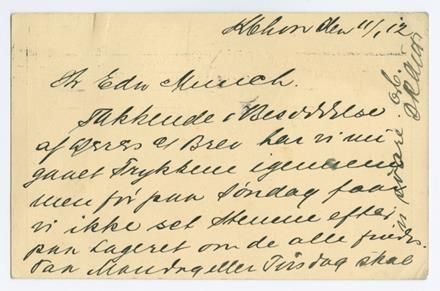 Khvn den 11/1 12
Hr Edv Munch.
Takkende i Besiddelse
af Deres Brev har vi nu
gaaet Trykkene igennem
men før paa Søndag faar
vi ikke set Stenene efter
paa Lageret om de alle findes.
Paa Mandag eller Tirsdag skal
vi svare